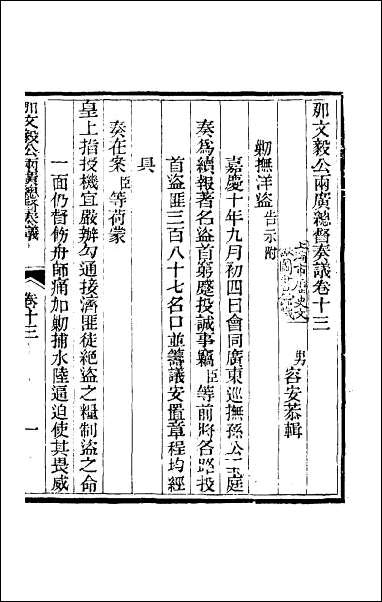 那文毅公兩廣總督奏議卷十三
男容安恭輯
勦撫洋盜告示附
嘉慶十年九月初四日會同廣東巡撫孫公玉庭
奏爲續報著名盜首窮蹙投誠事竊臣等前將各路投
首盜匪三百八十七名口並籌議安置章程均經
具
奏在案臣等荷蒙
皇上指授機宜嚴辦勾通接濟匪徒絕盜之糧制盜之命
一面仍督飭舟師痛加勦捕水陸逼迫使其畏威
那文毅公兩廣總督奏議
卷十三
一